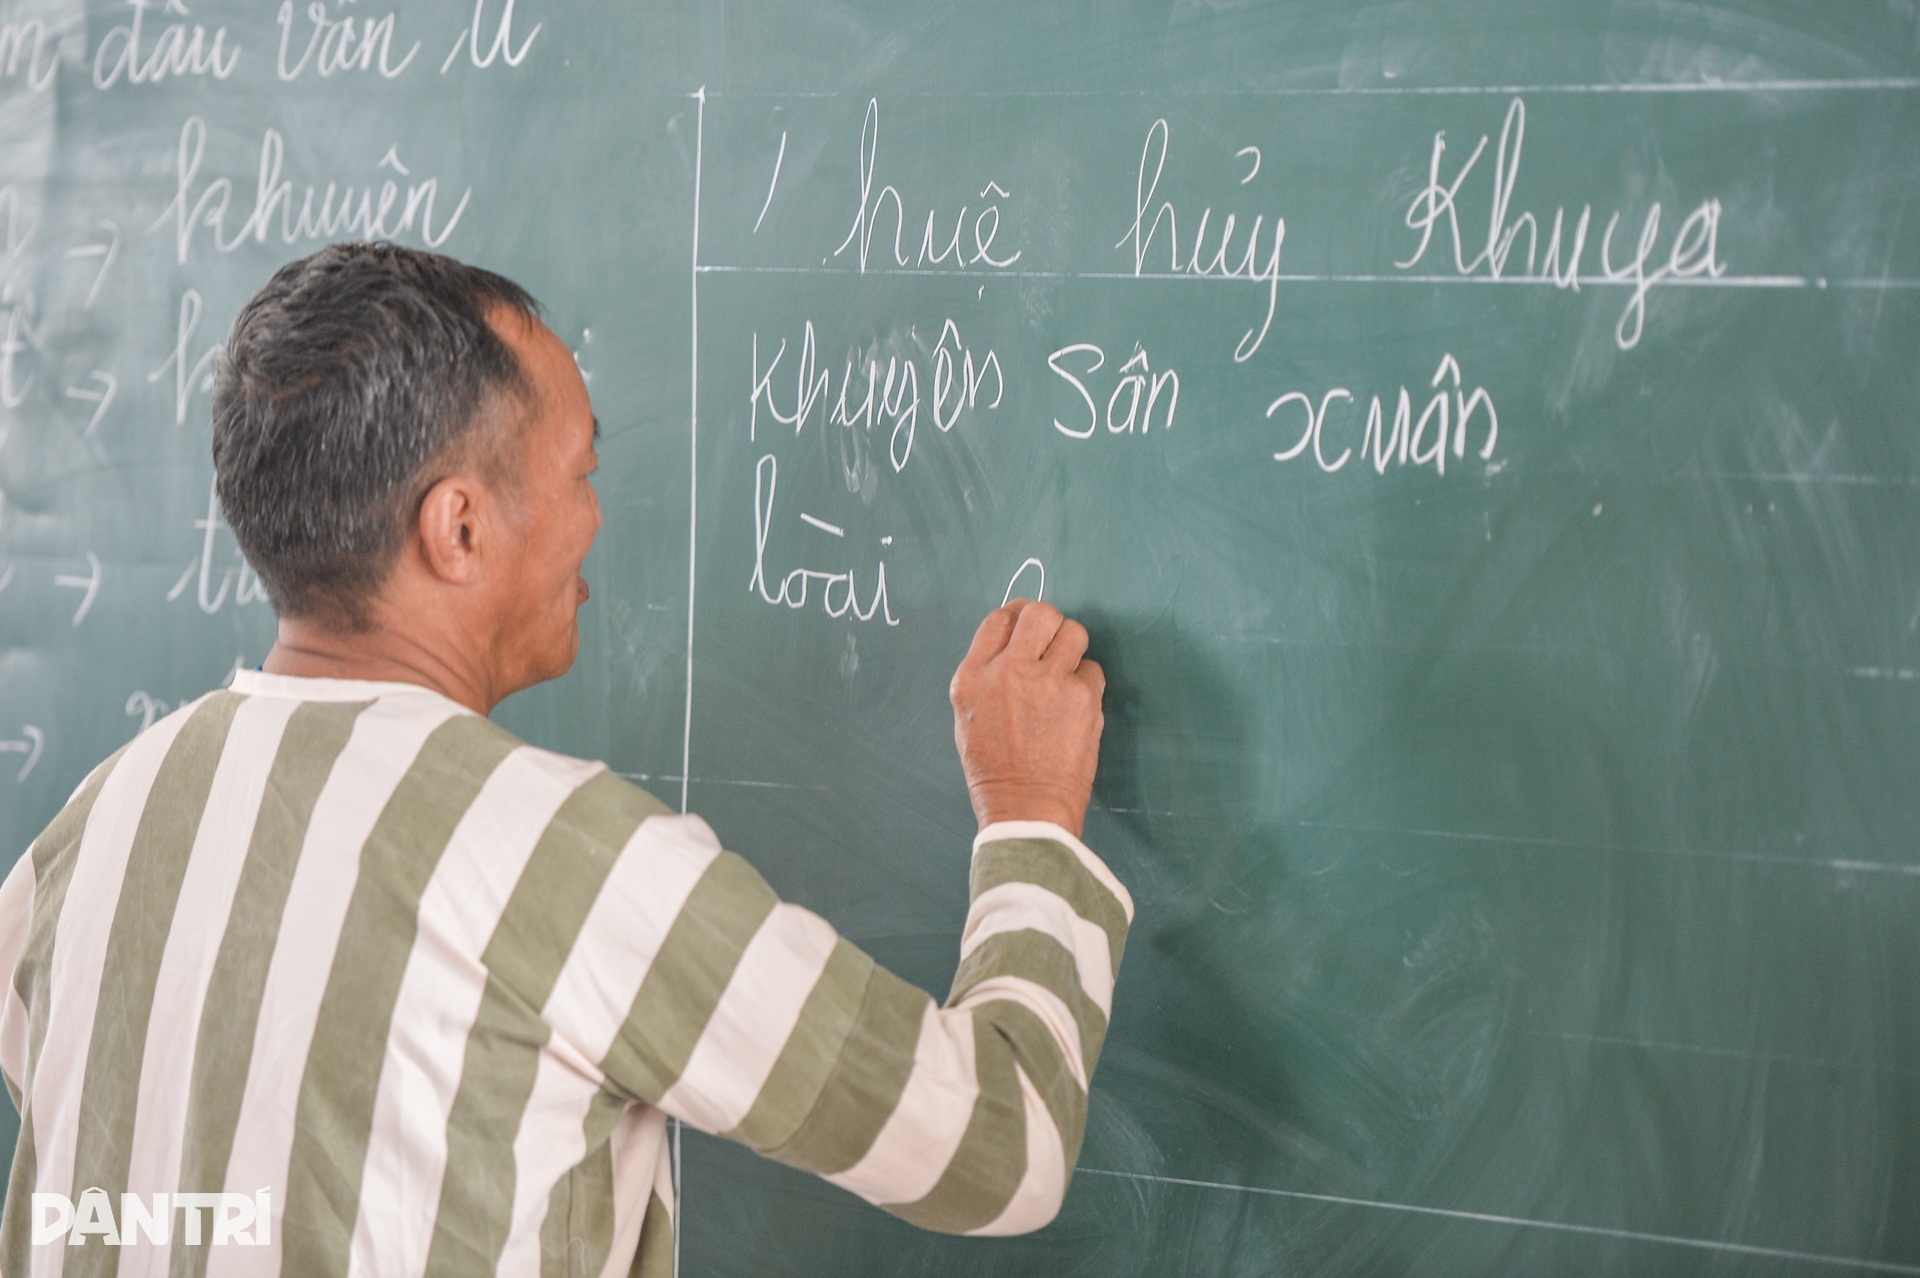 đầu vần u
khuyên
/ huệ hủy Khuya
Khuyên Sân xuân
loài
DÂN TRÍ